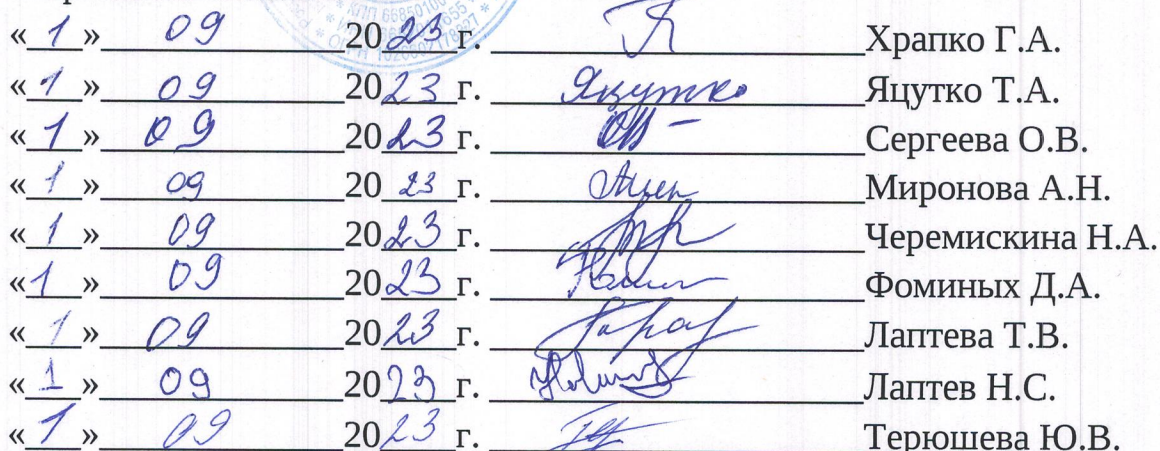 « 1 » 09 2023 г. Храпко Г.А.
« 1 » 09 2023 г. Яцутко Яцутко Т.А.
« 1 » 09 2023 г. Сергеева О.В.
« 1 » 09 2023 г. Миронова А.Н.
« 1 » 09 2023 г. Черемискина Н.А.
« 1 » 09 2023 г. Фоминых Д.А.
« 1 » 09 2023 г. Лаптева Т.В.
« 1 » 09 2023 г. Лаптев Н.С.
« 1 » 09 2023 г. Терюшева Ю.В.